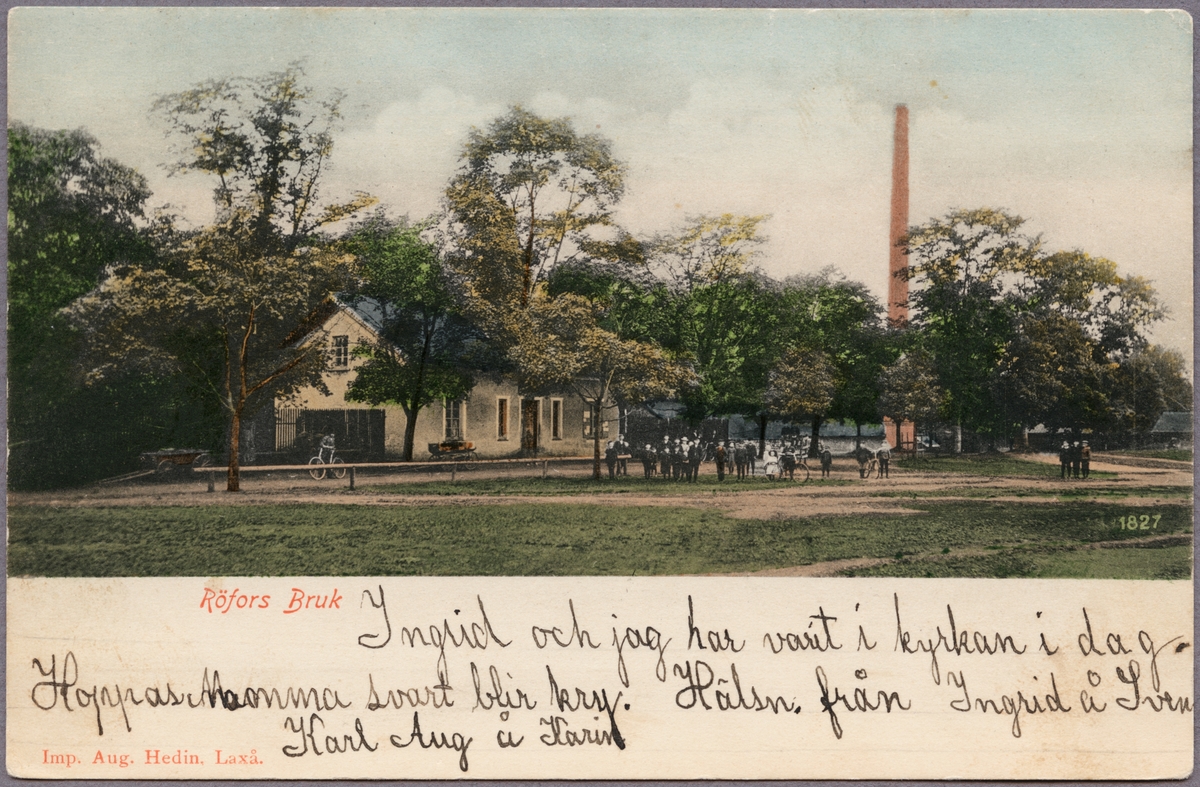 1827
Röfors Bruk
Ingrid och jag har varit i kyrkan i dag.
Hoppas Mamma svart blir kry. Hälsn. från Ingrid å Sven
Karl Aug å Karin
Imp. Aug. Hedin, Laxå.